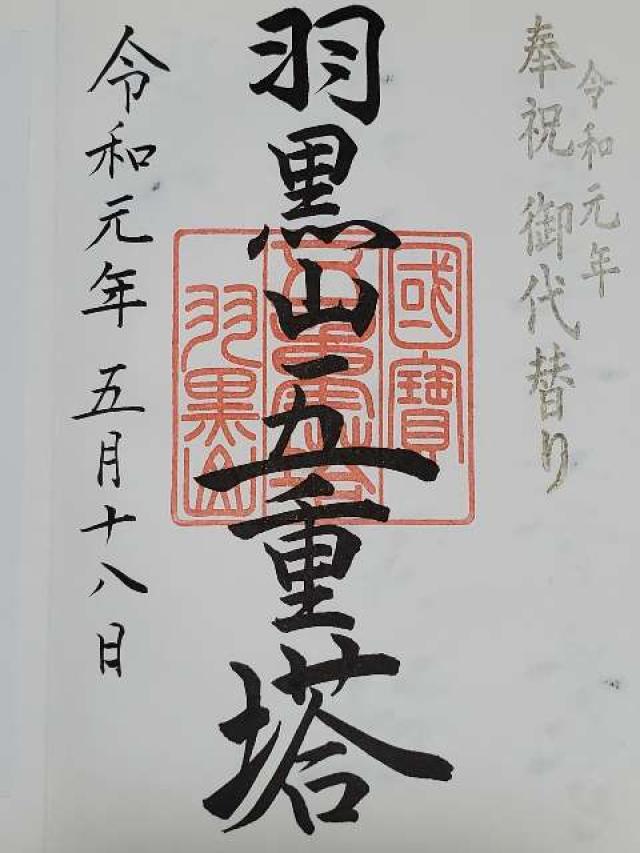 令和元年
奉祝 御代替り
羽黒山五重塔
國寶
五重塔
羽黒山
令和元年 五月十八日